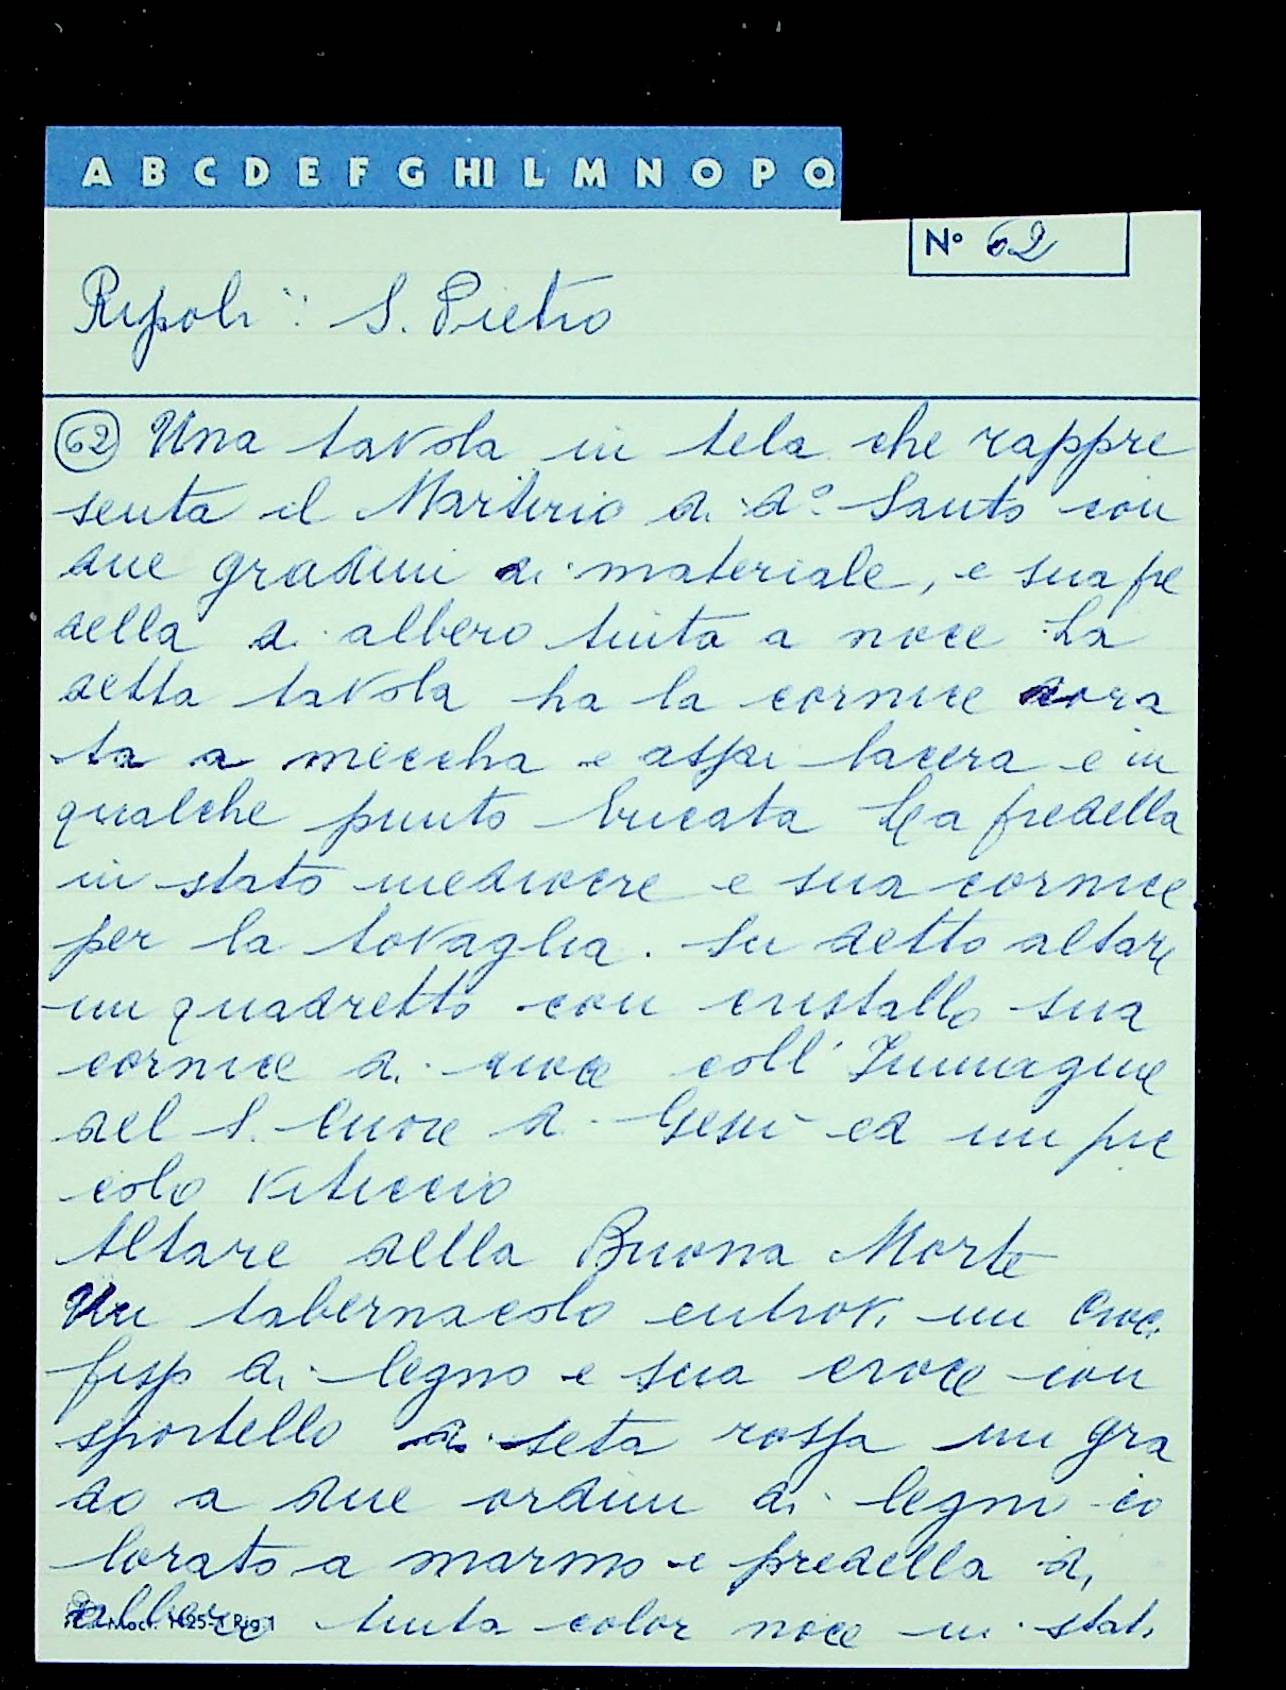 A B C D E F G HI L M N O P Q
N° 62
Ripoli: S. Pietro
62 Una tavola in tela che rappre
senta il Martirio di d.º Santo con
due gradini di materiale, e sua pe
della di albero tinta a noce La
detta tavola ha la cornice dora
ta a meccha e assai lacera e in
qualche punto bucata La predella
in stato mediocre e sua cornice
per la tovaglia. Su detto altare
un quadretto con cristallo sua
cornice di noce coll' Immagine
del S. Cuore di Gesù ed un pic
colo Vituccio
Altare della Buona Morte
Un tabernacolo entrovi un Croci
fisso di legno e sua croce con
sportello di seta rossa un gra
do a due ordini di legno co
lorato a marmo e predella di
albero tinta color noce in stat.